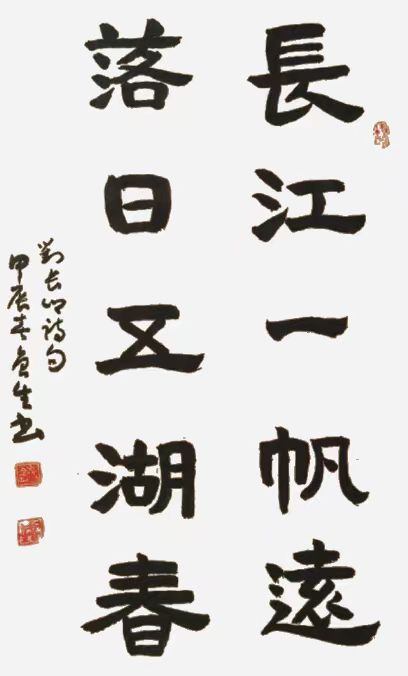 長江一帆遠
落日五湖春
劉长卿詩句
甲辰春鲁生书